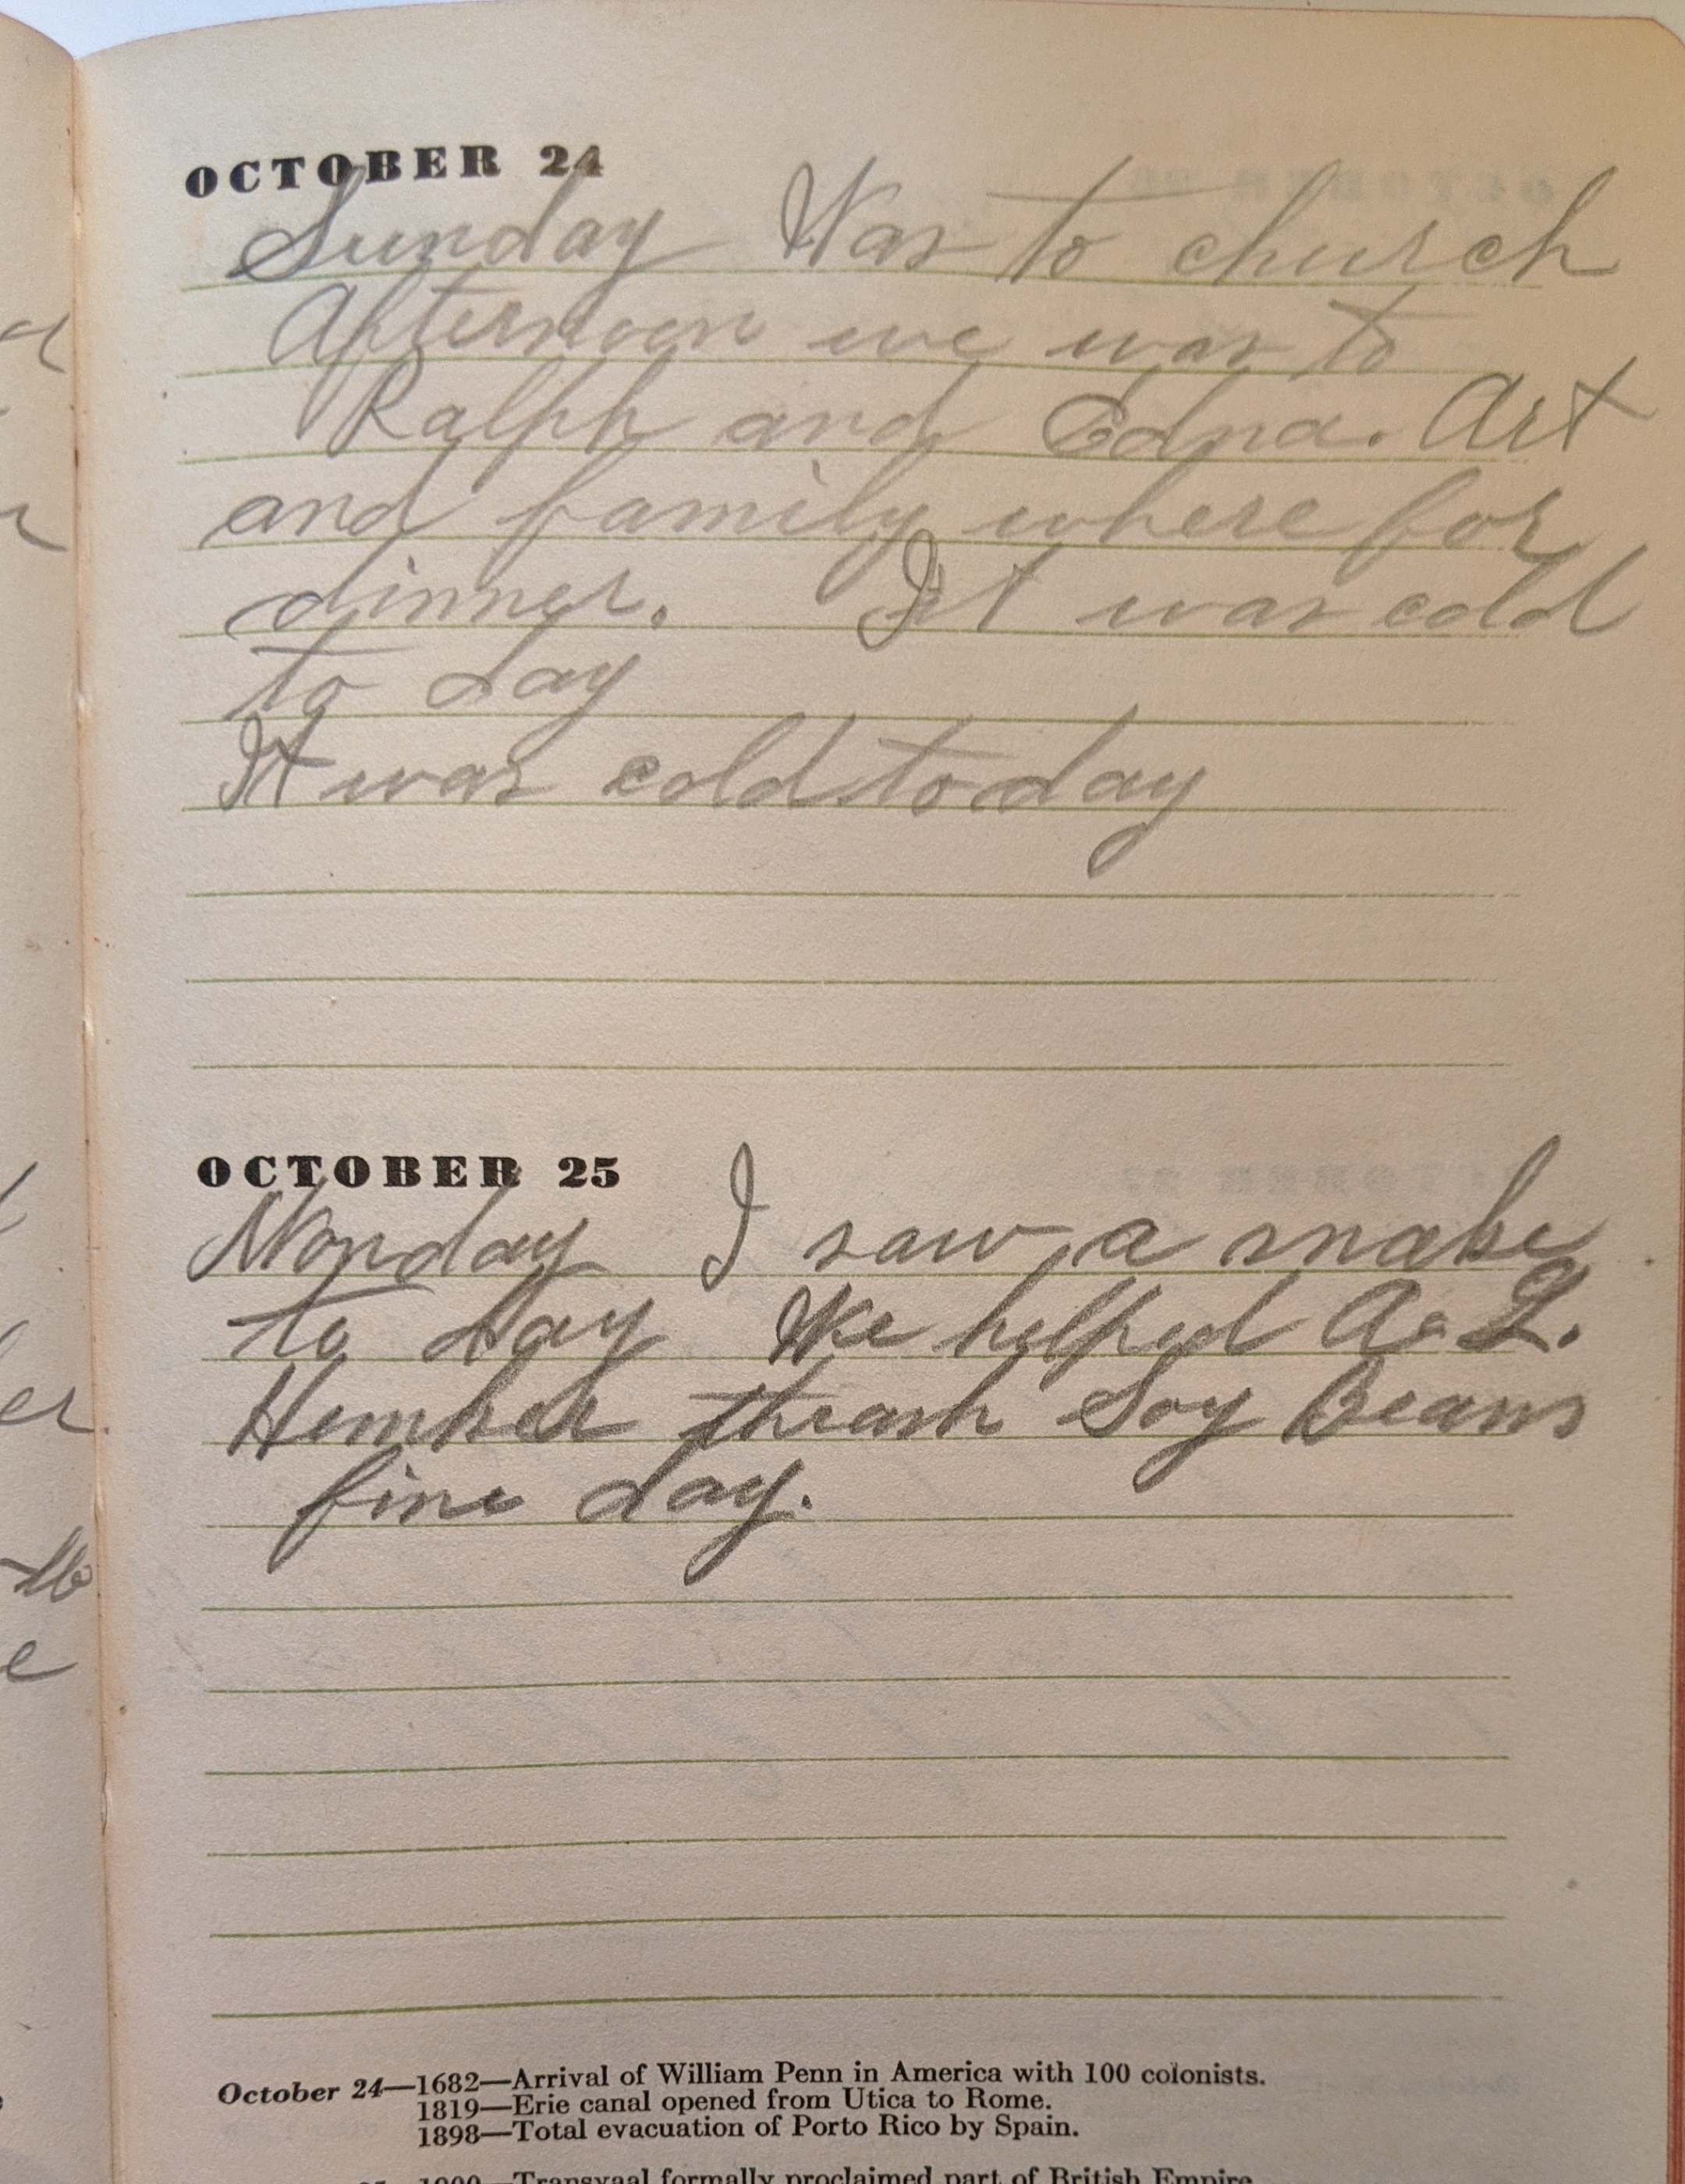 OCTOBER 24
Sunday Was to church
Afternoon we was to
Ralph and Edna. Art
and family where for
dinner. It was cold
to day
It was cold to day
OCTOBER 25
Monday I saw a snake
to day We helped A. L.
Hember thrash Soy Beans
fine day.
October 24—1682—Arrival of William Penn in America with 100 colonists.
1819—Erie canal opened from Utica to Rome.
1898—Total evacuation of Porto Rico by Spain.
Transvaal formally proclaimed part of British Empire